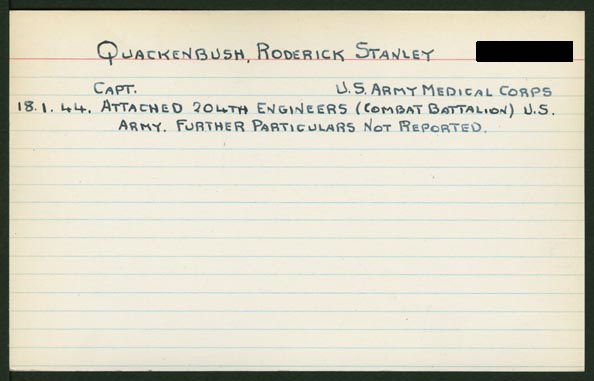 QUACKENBUSH, RODERICK STANLEY
CAPT. U.S. ARMY MEDICAL CORPS
18.1.44. ATTACHED 204TH ENGINEERS (COMBAT BATTALION) U.S.
ARMY. FURTHER PARTICULARS NOT REPORTED.